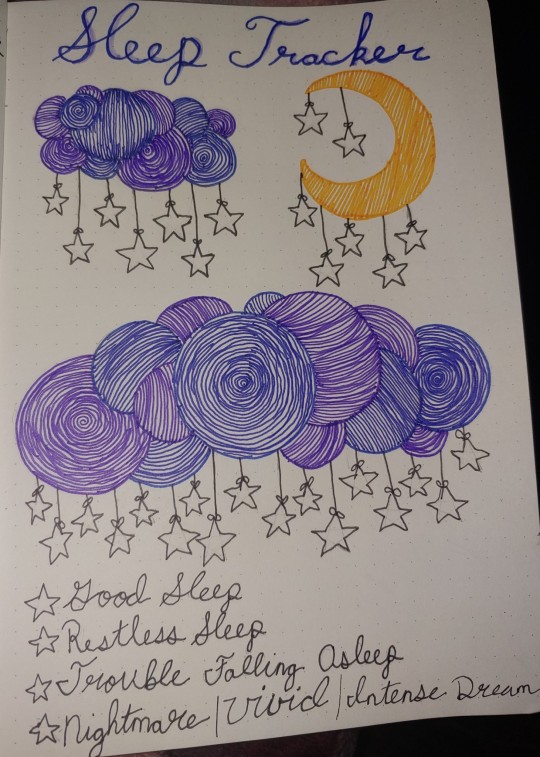 Sleep Tracker
Good Sleep
Restless Sleep
Trouble Falling Asleep
Nightmare/Vivid/Intense Dream